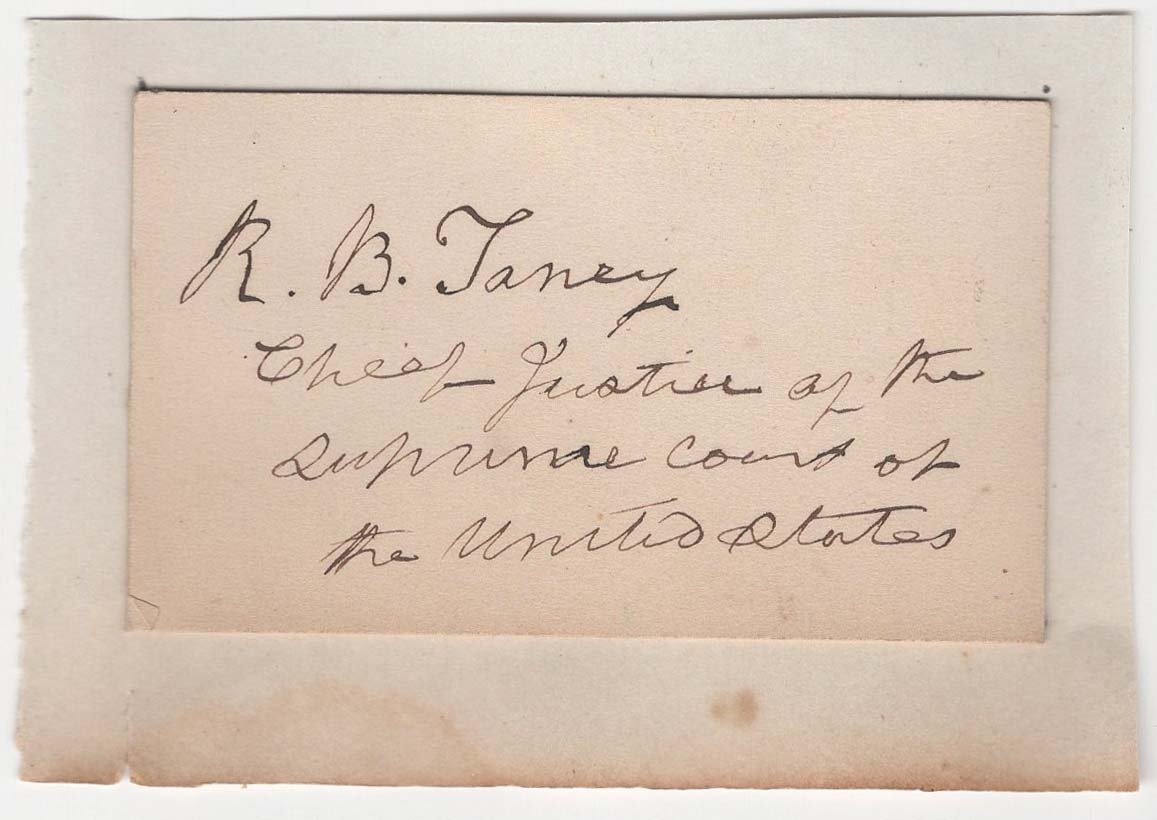 R. B. Taney
Chief Justice of the
Supreme Court of
the United States